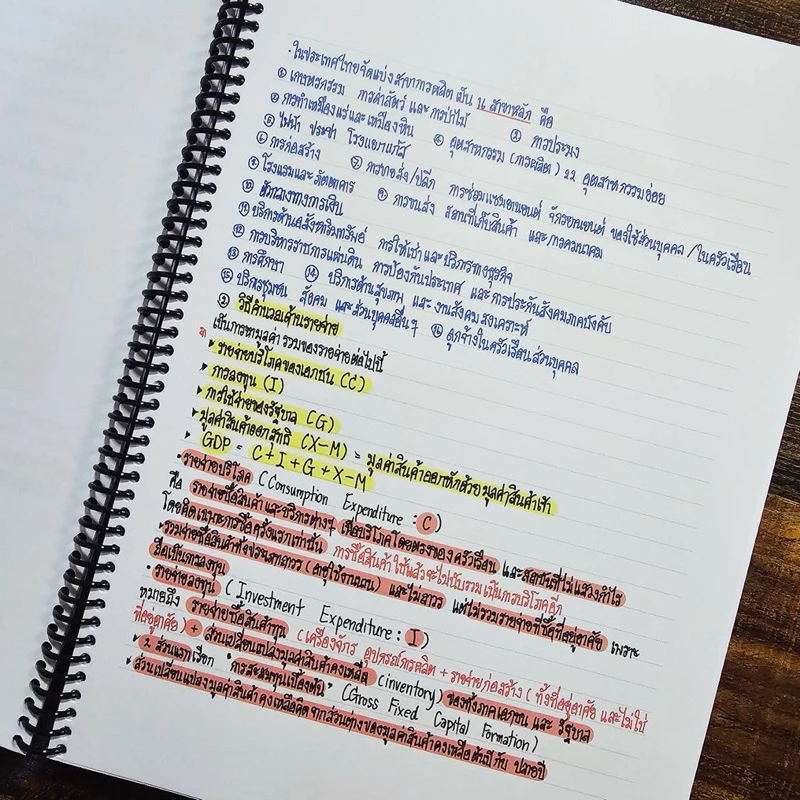 · ในประเทศไทยจัดแบ่งสาขาการผลิต เป็น 16 สาขาหลัก คือ
① เกษตรกรรม การล่าสัตว์ และ การป่าไม้ ② การประมง
③ การทำเหมืองแร่และเหมืองหิน ④ อุตสาหกรรม (การผลิต) 22 อุตสาหกรรมย่อย
⑤ ไฟฟ้า ประปา โรงแยกแก๊ส
⑥ การก่อสร้าง ⑦ การขายส่ง/ปลีก การซ่อมแซมยานยนต์ จักรยานยนต์ ของใช้ส่วนบุคคล/ในครัวเรือน
⑧ โรงแรมและภัตตาคาร ⑨ การขนส่ง สถานที่เก็บสินค้า และการคมนาคม
⑩ ตัวกลางทางการเงิน
⑪ บริการด้านอสังหาริมทรัพย์ การให้เช่า และบริการทางธุรกิจ
⑫ การบริหารราชการแผ่นดิน การป้องกันประเทศ และการประกันสังคมภาคบังคับ
⑬ การศึกษา ⑭ บริการด้านสุขภาพ และงานสังคมสงเคราะห์
⑮ บริการชุมชน สังคม และส่วนบุคคลอื่นๆ ⑯ ลูกจ้างในครัวเรือนส่วนบุคคล
② วิธีคำนวณด้านรายจ่าย
เป็นการหามูลค่ารวมของรายจ่ายต่อไปนี้
▸ รายจ่ายบริโภคของเอกชน (C)
▸ การลงทุน (I)
▸ การใช้จ่ายของรัฐบาล (G)
▸ มูลค่าสินค้าออกสุทธิ (X-M) = มูลค่าสินค้าออกหักด้วยมูลค่าสินค้าเข้า
▸ GDP = C+I+G+X-M
· รายจ่ายบริโภค (Consumption Expenditure : C)
คือ รายจ่ายซื้อสินค้าและบริการต่างๆ เพื่อบริโภคโดยตรงของครัวเรือน และสถาบันที่ไม่แสวงกำไร
โดยคิดเฉพาะการซื้อครั้งแรกเท่านั้น การซื้อสินค้าใช้แล้วจะไม่นับรวมเป็นการบริโภคอีก
*รวมจ่ายซื้อสินค้าทั้งประเภทถาวร (อายุใช้งานนาน) และไม่ถาวร แต่ไม่รวมรายจ่ายที่ซื้อที่อยู่อาศัย เพราะ
ถือเป็นการลงทุน
· รายจ่ายลงทุน (Investment Expenditure : I)
หมายถึง รายจ่ายซื้อสินค้าทุน (เครื่องจักร อุปกรณ์การผลิต + รายจ่ายก่อสร้าง (ทั้งที่อยู่อาศัย และไม่ใช่
ที่อยู่อาศัย) + ส่วนเปลี่ยนแปลงมูลค่าสินค้าคงเหลือ (inventory) ของทั้งภาคเอกชน และ รัฐบาล
▸ 2 ส่วนแรกเรียก "การสะสมทุนเบื้องต้น" (Gross Fixed Capital Formation)
▸ ส่วนเปลี่ยนแปลงมูลค่าสินค้าคงเหลือคิดจากส่วนต่างของมูลค่าสินค้าคงเหลือต้นปีกับ ปลายปี